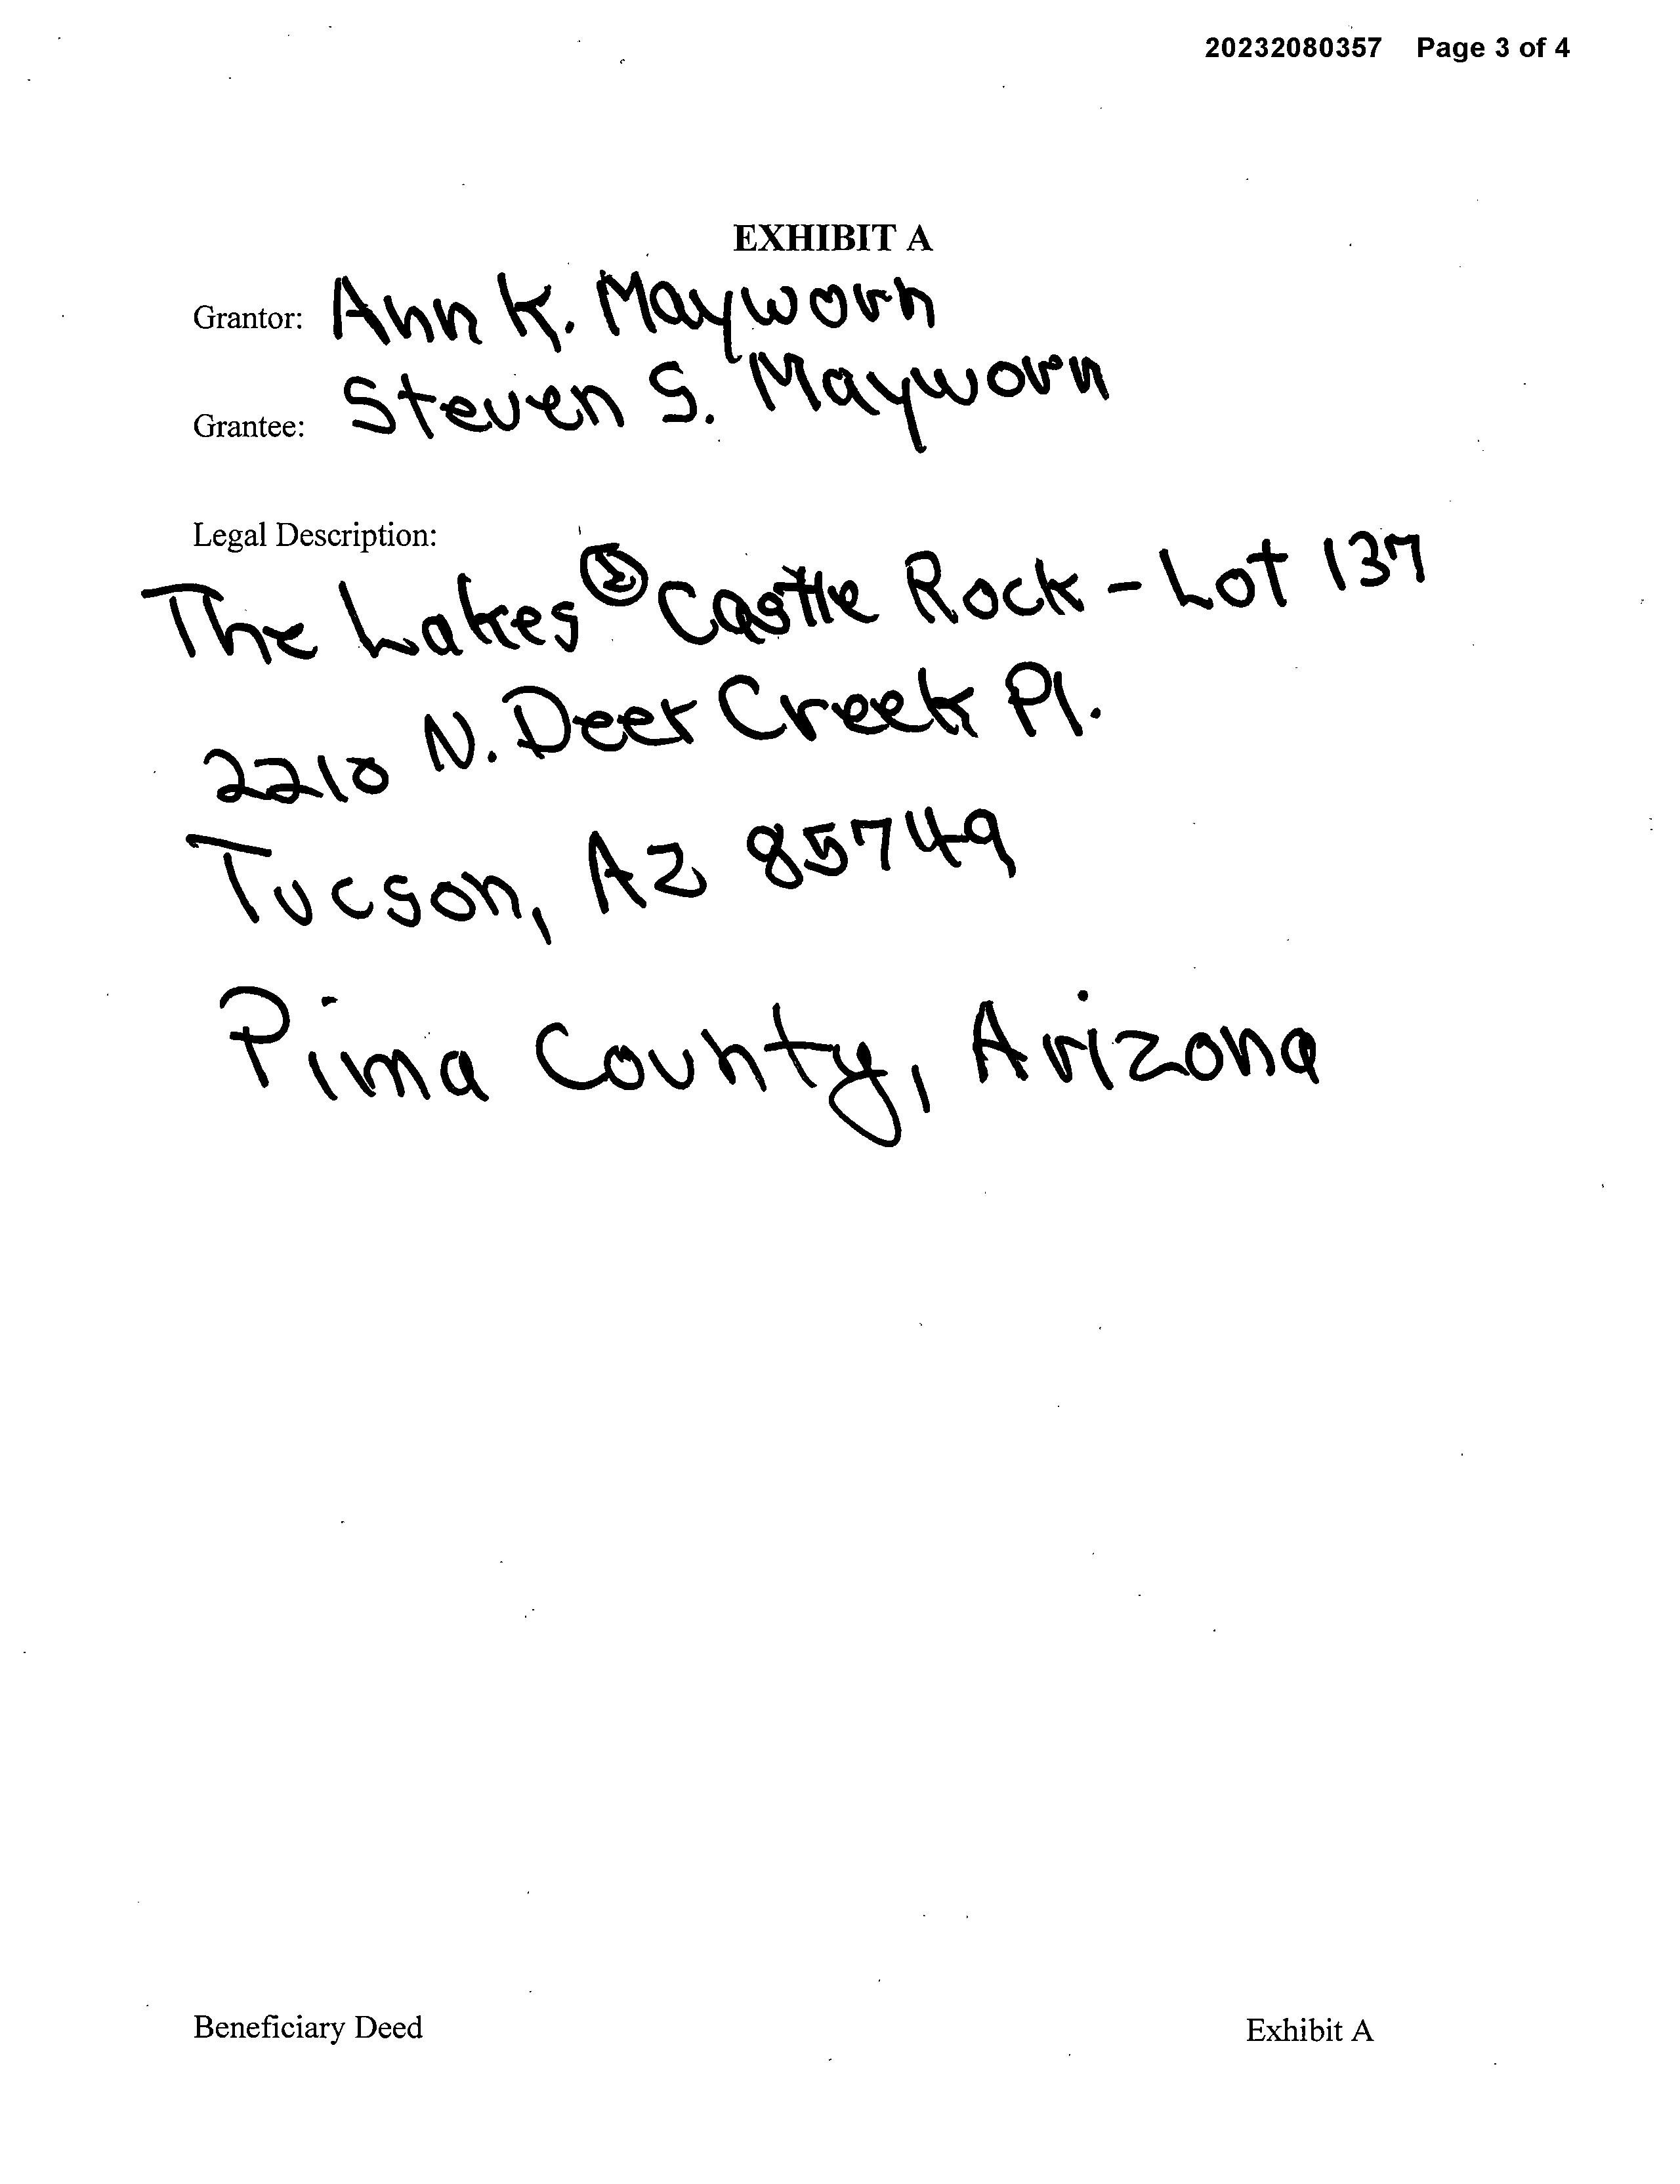 20232080357 Page 3 of 4
EXHIBIT A
Grantor: Ann K. Mayworn
Grantee: Steven S. Mayworn
Legal Description:
The Lakes @ Castle Rock - Lot 137
2210 N. Deer Creek Pl.
Tucson, AZ 85749
Pima County, Arizona
Beneficiary Deed Exhibit A